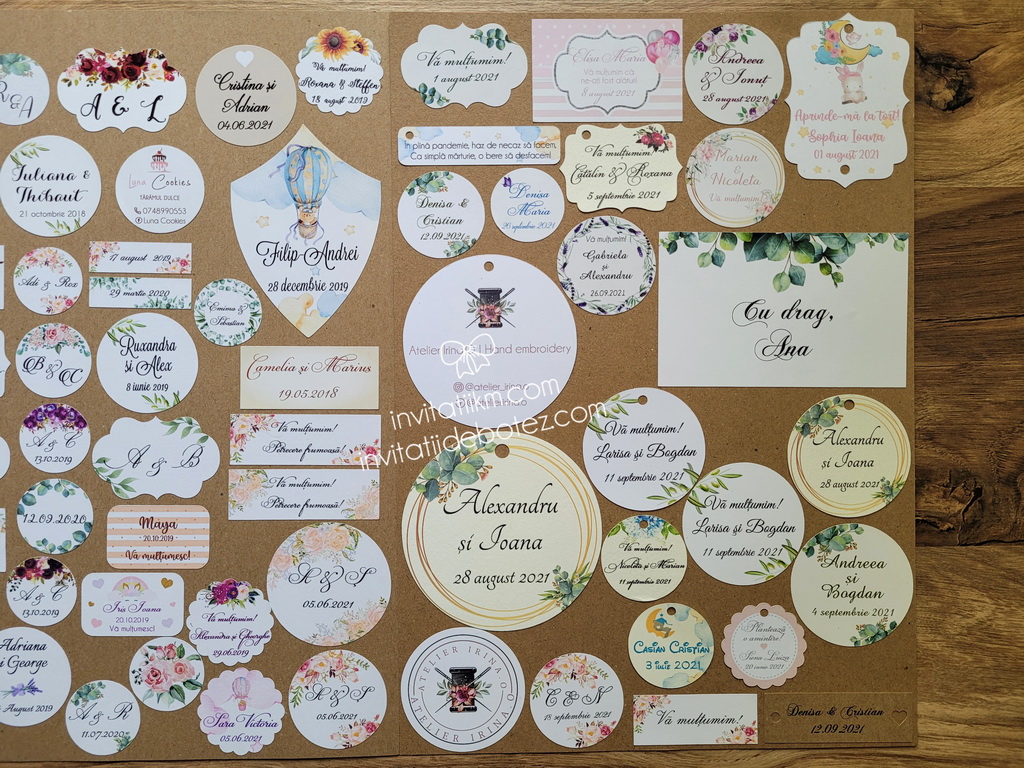 R & A
A & L
Cristina și
Adrian
04.06.2021
Vă mulțumim!
Roxana & Steffen
18 august 2019
Vă mulțumim!
1 august 2021
Elisa Maria
Vă mulțumim că
ne-ați fost alături
8 august 2021
Andreea
&
Ionuț
28 august 2021
Aprinde-mă la tort!
Sophia Ioana
01 august 2021
Iuliana &
Thibaut
21 octombrie 2018
Luna Cookies
TĂRÂMUL DULCE
0748990553
Luna Cookies
Filip-Andrei
28 decembrie 2019
În plină pandemie, haz de necaz să facem,
Ca simplă mărturie, o bere să desfacem!
Vă mulțumim!
Cătălin & Roxana
5 septembrie 2021
Marian
&
Nicoleta
Vă mulțumim!
Denisa &
Cristian
12.09.2021
Denisa
Maria
Vă mulțumim!
Gabriela
și
Alexandru
26.09.2021
Cu drag,
Ana
Adi & Rox
17 august 2019
29 martie 2020
Emima &
Sebastian
Atelier Irina O | Hand embroidery
@atelier_irina.o
invitatiikm.com
invitatiidebotez.com
B & C
Ruxandra
si Alex
8 iunie 2019
Camelia și Marius
19.05.2018
A & C
13.10.2019
A & B
Vă mulțumim!
Petrecere frumoasă!
Vă mulțumim!
Petrecere frumoasă!
Vă mulțumim!
Larisa și Bogdan
11 septembrie 2021
Vă mulțumim!
Larisa și Bogdan
11 septembrie 2021
Alexandru
și Ioana
28 august 2021
Alexandru
și Ioana
28 august 2021
12.09.2020
Maya
20.10.2019
Vă mulțumesc!
Vă mulțumim!
Nicoleta și Marian
11 septembrie 2021
Andreea
și
Bogdan
4 septembrie 2021
A & C
13.10.2019
Iris Ioana
20.10.2019
Vă mulțumesc!
Vă mulțumim!
Alexandra și Gheorghe
29.06.2019
05.06.2021
CASIAN CRISTIAN
3 iulie 2021
Plantează
o amintire
20 iunie 2021
Adriana
și George
August 2019
A & R
11.07.2020
Sara Victoria
05.06.2021
05.06.2021
ATELIER IRINA O
ATELIER IRINA O
C & N
18 septembrie 2021
Vă mulțumim!
Denisa & Cristian
12.09.2021